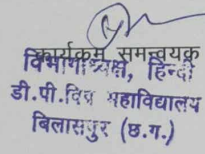 कार्यक्रम समन्वयक
विभागाध्यक्ष, हिन्दी
डी.पी.विप्र महाविद्यालय
बिलासपुर (छ.ग.)